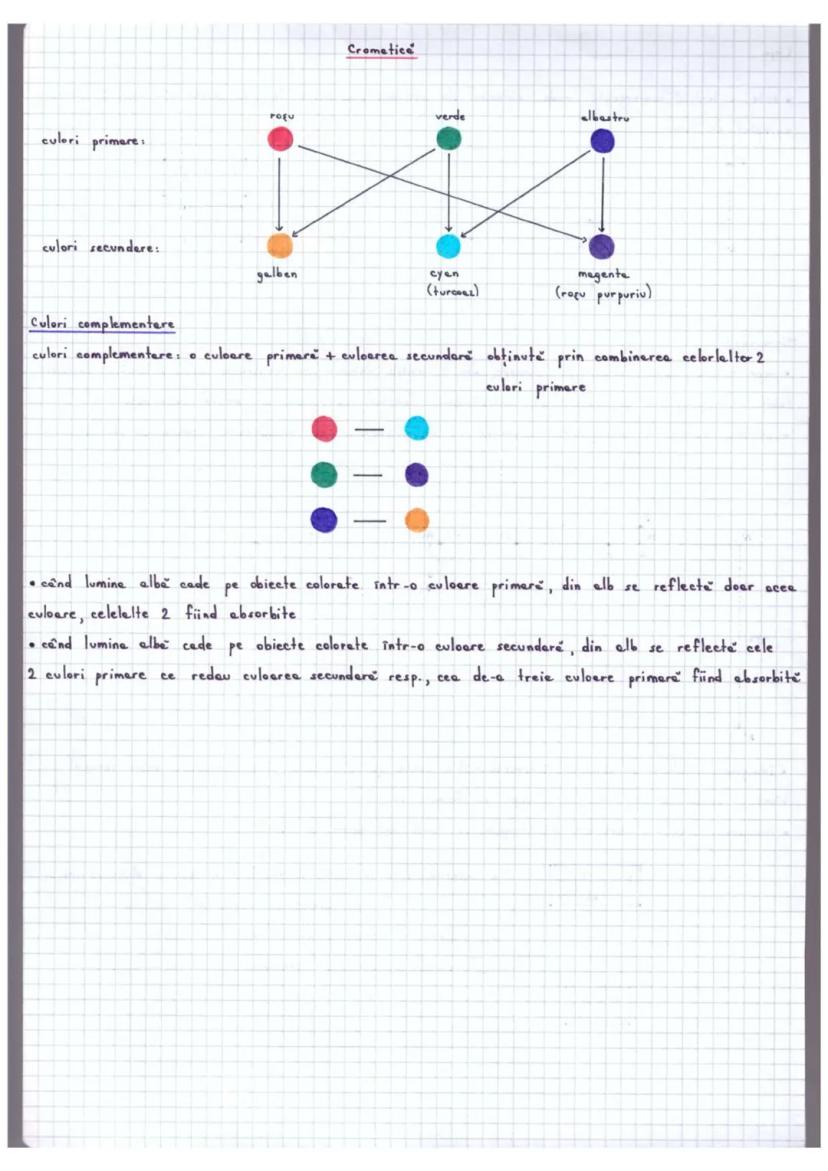 Cromatică
roșu verde albastru
culori primare:
culori secundare:
galben cyan magenta
(turcoaz) (roșu purpuriu)
Culori complementare
culori complementare: o culoare primară + culoarea secundară obținută prin combinarea celorlaltor 2
culori primare
• când lumina albă cade pe obiecte colorate într-o culoare primară, din alb se reflectă doar acea
culoare, celelalte 2 fiind absorbite
• când lumina albă cade pe obiecte colorate într-o culoare secundară, din alb se reflectă cele
2 culori primare ce redau culoarea secundară resp., cea de-a treia culoare primară fiind absorbită